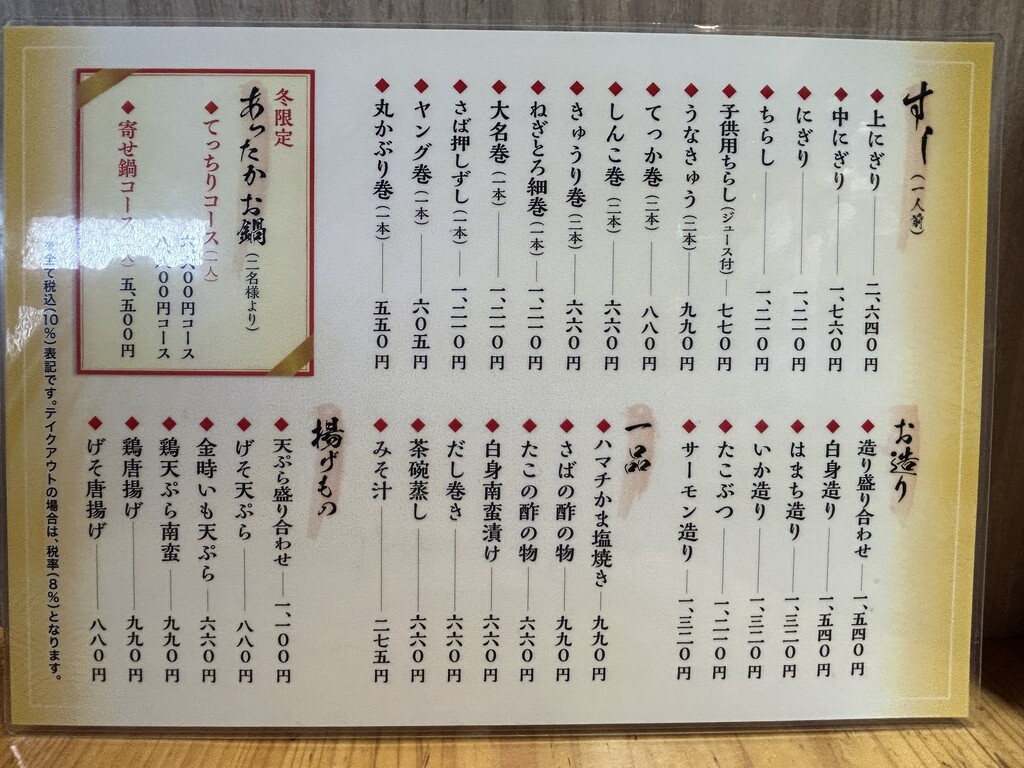 すし(一人前)
上にぎり 二、六四〇円
中にぎり 一、七六〇円
にぎり 一、二一〇円
ちらし 一、二一〇円
子供用ちらし(ジュース付) 七七〇円
うなきゅう(二本) 九九〇円
てっか巻(二本) 八八〇円
しんこ巻(二本) 六六〇円
きゅうり巻(二本) 六六〇円
ねぎとろ細巻(一本) 一、二一〇円
大名巻(一本) 一、二一〇円
さば押しずし(一本) 一、二一〇円
ヤング巻(一本) 六〇五円
丸かぶり巻(一本) 五五〇円
冬限定
あったかお鍋(二名様より)
てっちりコース(一人)
六、六〇〇円コース
八、八〇〇円コース
寄せ鍋コース 五、五〇〇円
お造り
造り盛り合わせ 一、五四〇円
白身造り 一、五四〇円
はまち造り 一、三二〇円
いか造り 一、三二〇円
たこぶつ 一、二一〇円
サーモン造り 一、三二〇円
一品
ハマチかま塩焼き 九九〇円
さばの酢の物 九九〇円
たこの酢の物 六六〇円
白身南蛮漬け 六六〇円
だし巻き 六六〇円
茶碗蒸し 六六〇円
みそ汁 二七五円
揚げもの
天ぷら盛り合わせ 一、一〇〇円
げそ天ぷら 八八〇円
金時いも天ぷら 六六〇円
鶏天ぷら南蛮 九九〇円
鶏唐揚げ 九九〇円
げそ唐揚げ 八八〇円
※全て税込(10%)表記です。テイクアウトの場合は、税率(8%)となります。